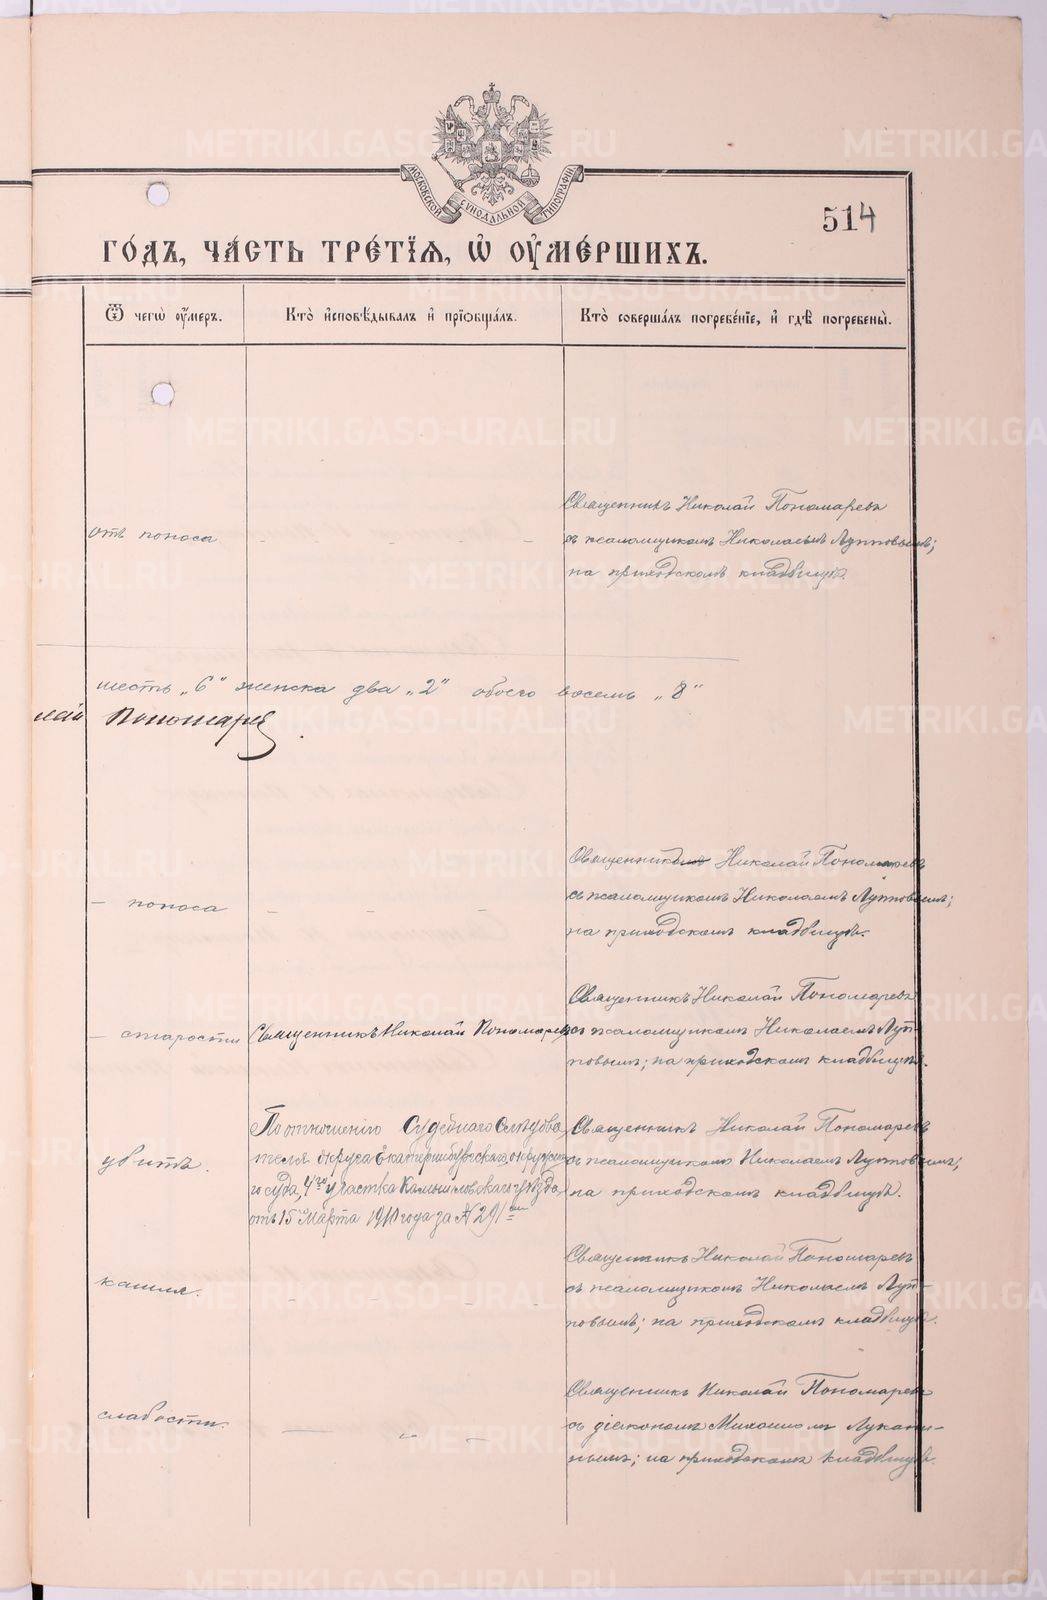 METRIKI.GASO-URAL.RU
МОСКОВСКОЙ СѴНОДАЛЬНОЙ ТИПОГРАФІИ
514
ГО́ДЪ, ЧА́СТЬ ТРЕ́ТІѦ, Ѡ҆ ОУ҆МЕ́РШИХЪ.
Ѿ чегѡ̀ оу҆́меръ.
Кто̀ и҆сповѣ́дывалъ и҆ прїѡбща́лъ.
Кто̀ соверша́лъ погребе́нїе, и҆ гдѣ̀ погребены̀.
отъ поноса
Священникъ Николай Пономаревъ
съ псаломщикомъ Николаемъ Лупповымъ;
на приходскомъ кладбищѣ.
шесть „6“ женска два „2“ обоего восемь „8“
лай Пономарев
– поноса
Священникомъ Николай Пономаревъ
съ псаломщикомъ Николаемъ Лупповымъ;
на приходскомъ кладбищѣ.
– старости
Священникъ Николай Пономаревъ
Священникъ Николай Пономаревъ
съ псаломщикомъ Николаемъ Луп-
повымъ; на приходскомъ кладбищѣ.
убитъ.
По отношенію Судебнаго Слѣдова
теля округа Екатеринбургскаго окружна
го суда, 4го участка Камышловскаго уѣзда
отъ 15 Марта 1910 года за № 291
Священникъ Николай Пономаревъ
съ псаломщикомъ Николаемъ Лупповымъ;
на приходскомъ кладбищѣ.
кашля.
Священникъ Николай Пономаревъ
съ псаломщикомъ Николаемъ Луп-
повымъ; на приходскомъ кладбищѣ.
слабости.
Священникъ Николай Пономаревъ
съ діакономъ Михаиломъ Лукани-
нымъ; на приходскомъ кладбищѣ.